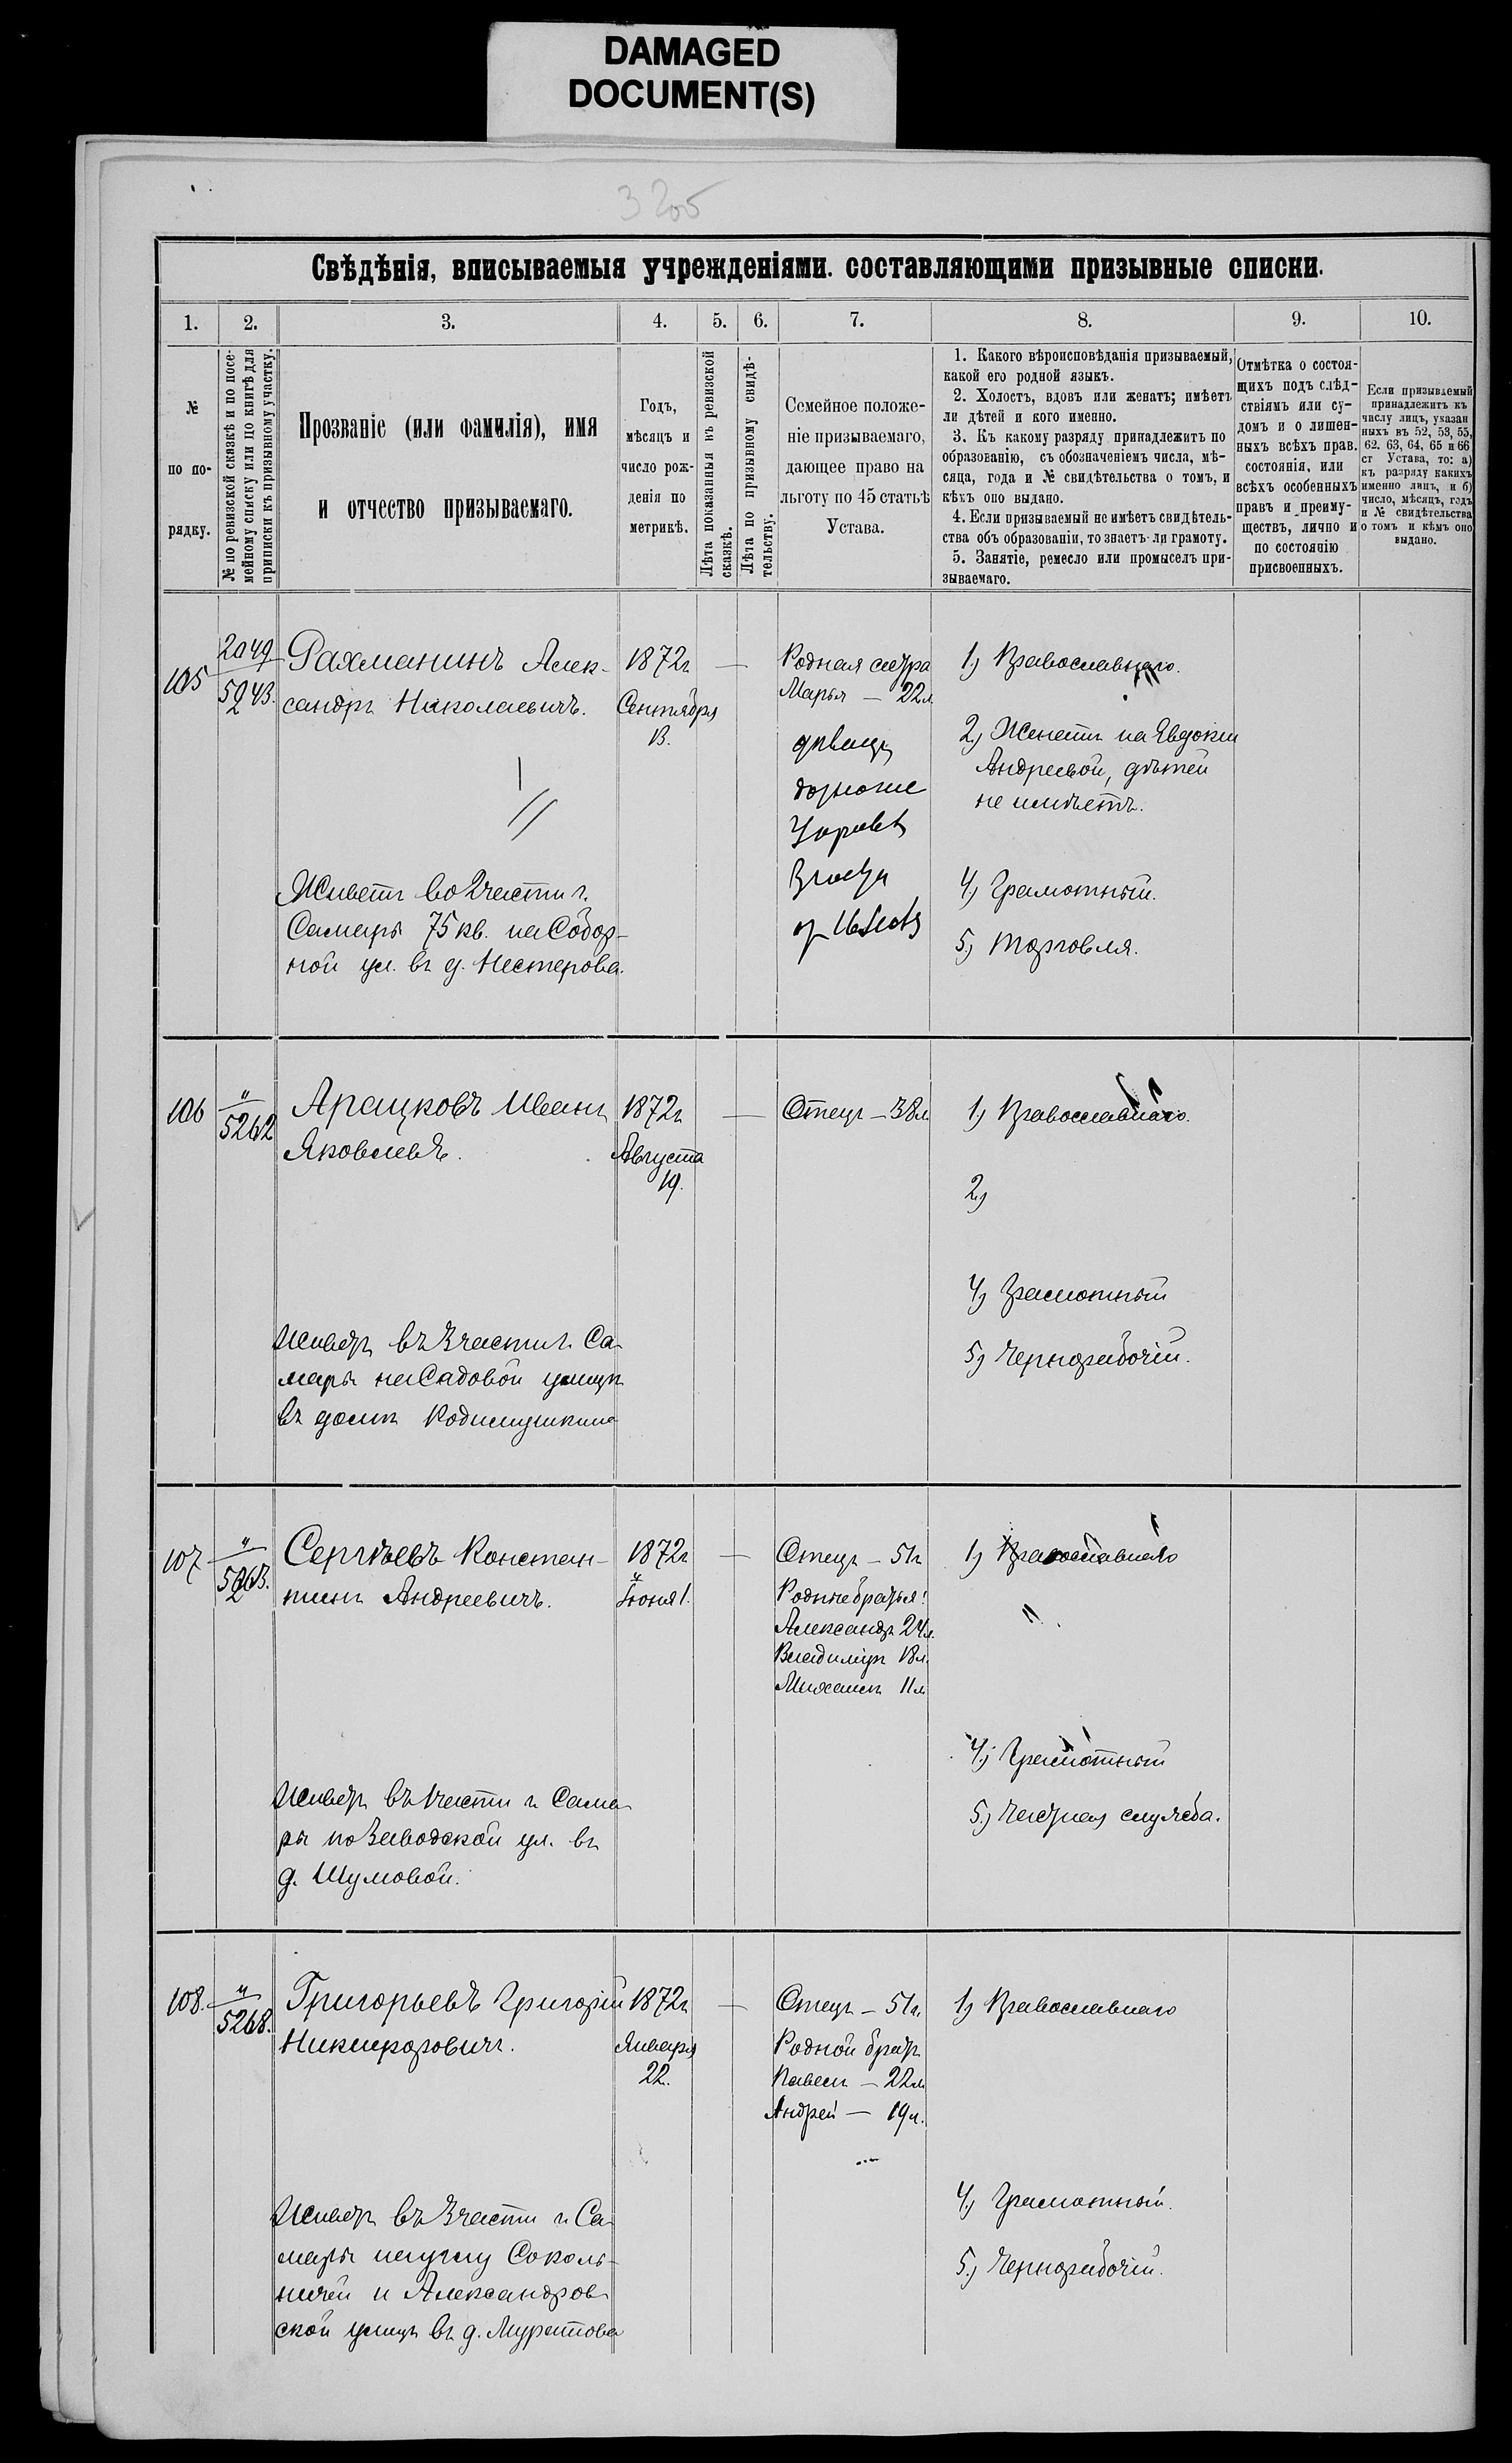 DAMAGED
DOCUMENT(S)
3205
Свѣдѣнія, вписываемыя учрежденіями. составляющими призывные списки.
1. 2. 3. 4. 5. 6. 7. 8. 9. 10.
№
по по-
рядку.
№ по ревизской сказкѣ и по посе-
мейному списку или по книгѣ для
приписки къ призывному участку.
Прозваніе (или фамилія), имя
и отчество призываемаго.
Годъ,
мѣсяцъ и
число рож-
денія по
метрикѣ.
Лѣта показанныя въ ревизской
сказкѣ.
Лѣта по призывному свидѣ-
тельству.
Семейное положе-
ніе призываемаго,
дающее право на
льготу по 45 статьѣ
Устава.
1. Какого вѣроисповѣданія призываемый,
какой его родной языкъ.
2. Холостъ, вдовъ или женатъ; имѣетъ
ли дѣтей и кого именно.
3. Къ какому разряду принадлежитъ по
образованію, съ обозначеніемъ числа, мѣ-
сяца, года и № свидѣтельства о томъ, и
кѣмъ оно выдано.
4. Если призываемый не имѣетъ свидѣтель-
ства объ образованіи, то знаетъ-ли грамоту.
5. Занятіе, ремесло или промыселъ при-
зываемаго.
Отмѣтка о состоя-
щихъ подъ слѣд-
ствіямъ или су-
домъ и о лишен-
ныхъ всѣхъ прав.
состоянія, или
всѣхъ особенныхъ
правъ и преиму-
ществъ, лично и
по состоянію
присвоенныхъ.
Если призываемый
принадлежитъ къ
числу лицъ, указан
ныхъ въ 52, 53, 55,
62. 63, 64, 65 и 66
ст Устава, то: а)
къ разряду какихъ
именно лицъ, и б)
число, мѣсяцъ, годъ
и № свидѣтельства
о томъ и кѣмъ оно
выдано.
105
2049
5243.
Рахманинъ Алек-
сандръ Николаевичъ.
Живетъ во 2 части г.
Самары 75 кв. на Собор-
ной ул. въ д. Нестерова.
1872г.
Сентября
13.
Родная сестра
Марья — 22л.
1) Православнаго.
2) Женатъ на Евдокіи
Андреевой, дѣтей
не имѣетъ.
4) Грамотный.
5) Торговля.
106
"
5262
Арацковъ Иванъ
Яковлевъ.
Живетъ въ 3 части г. Са-
мары на Садовой улицѣ
въ домѣ Родимушкина
1872г.
Августа
19.
Отецъ — 38л.
1) Православнаго.
2)
4) Грамотный
5) Чернорабочій.
107
"
5263.
Сергѣевъ Констан-
тинъ Андреевичъ.
Живетъ въ 1 части г. Сама-
ры по Заводской ул. въ
д. Шумовой.
1872г.
Іюня 1.
Отецъ — 51г.
Родные братья:
Александръ 24л.
Владиміръ 18л.
Михаилъ 11л.
1) Православнаго
4) Грамотный
5) Частная служба.
108.
"
5268.
Григорьевъ Григорій
Никифоровичъ.
Живетъ въ 3 части г. Са-
мары на углу Соколь-
ничей и Александров-
ской улицъ въ д. Муратова
1872г.
Января
22.
Отецъ — 51г.
Родной братъ
Павелъ — 22л.
Андрей — 19л.
1) Православнаго
4) Грамотный.
5) Чернорабочій.